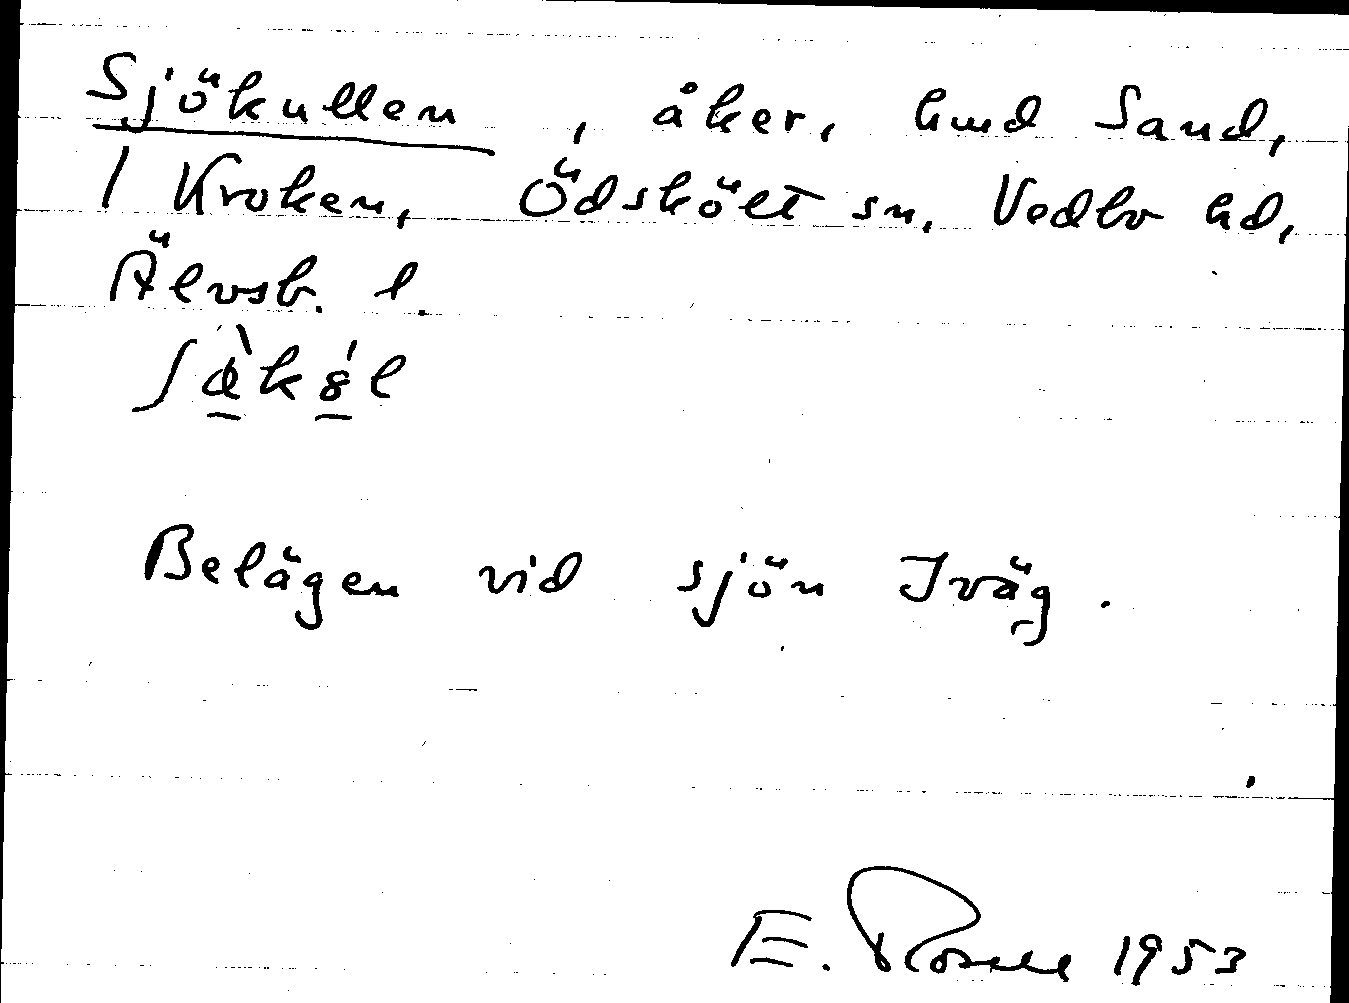 Sjökullen, åker, hmd Sand,
1 Kroken, Ödskölt sn, Vedbo hd,
Älvsb. l.
Belägen vid sjön Iväg.
E. Rosell 1953